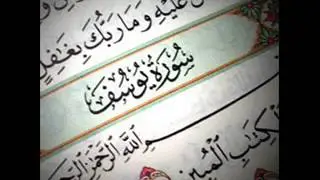 عَلَيْهِ وَمَا رَبُّكَ بِغَٰفِلٍ
سُورَةُ يُوسُفَ
ٱللَّهِ ٱلرَّحْمَٰنِ ٱلرَّحِيمِ
ٱلْكِتَٰبِ ٱلْمُبِينِ